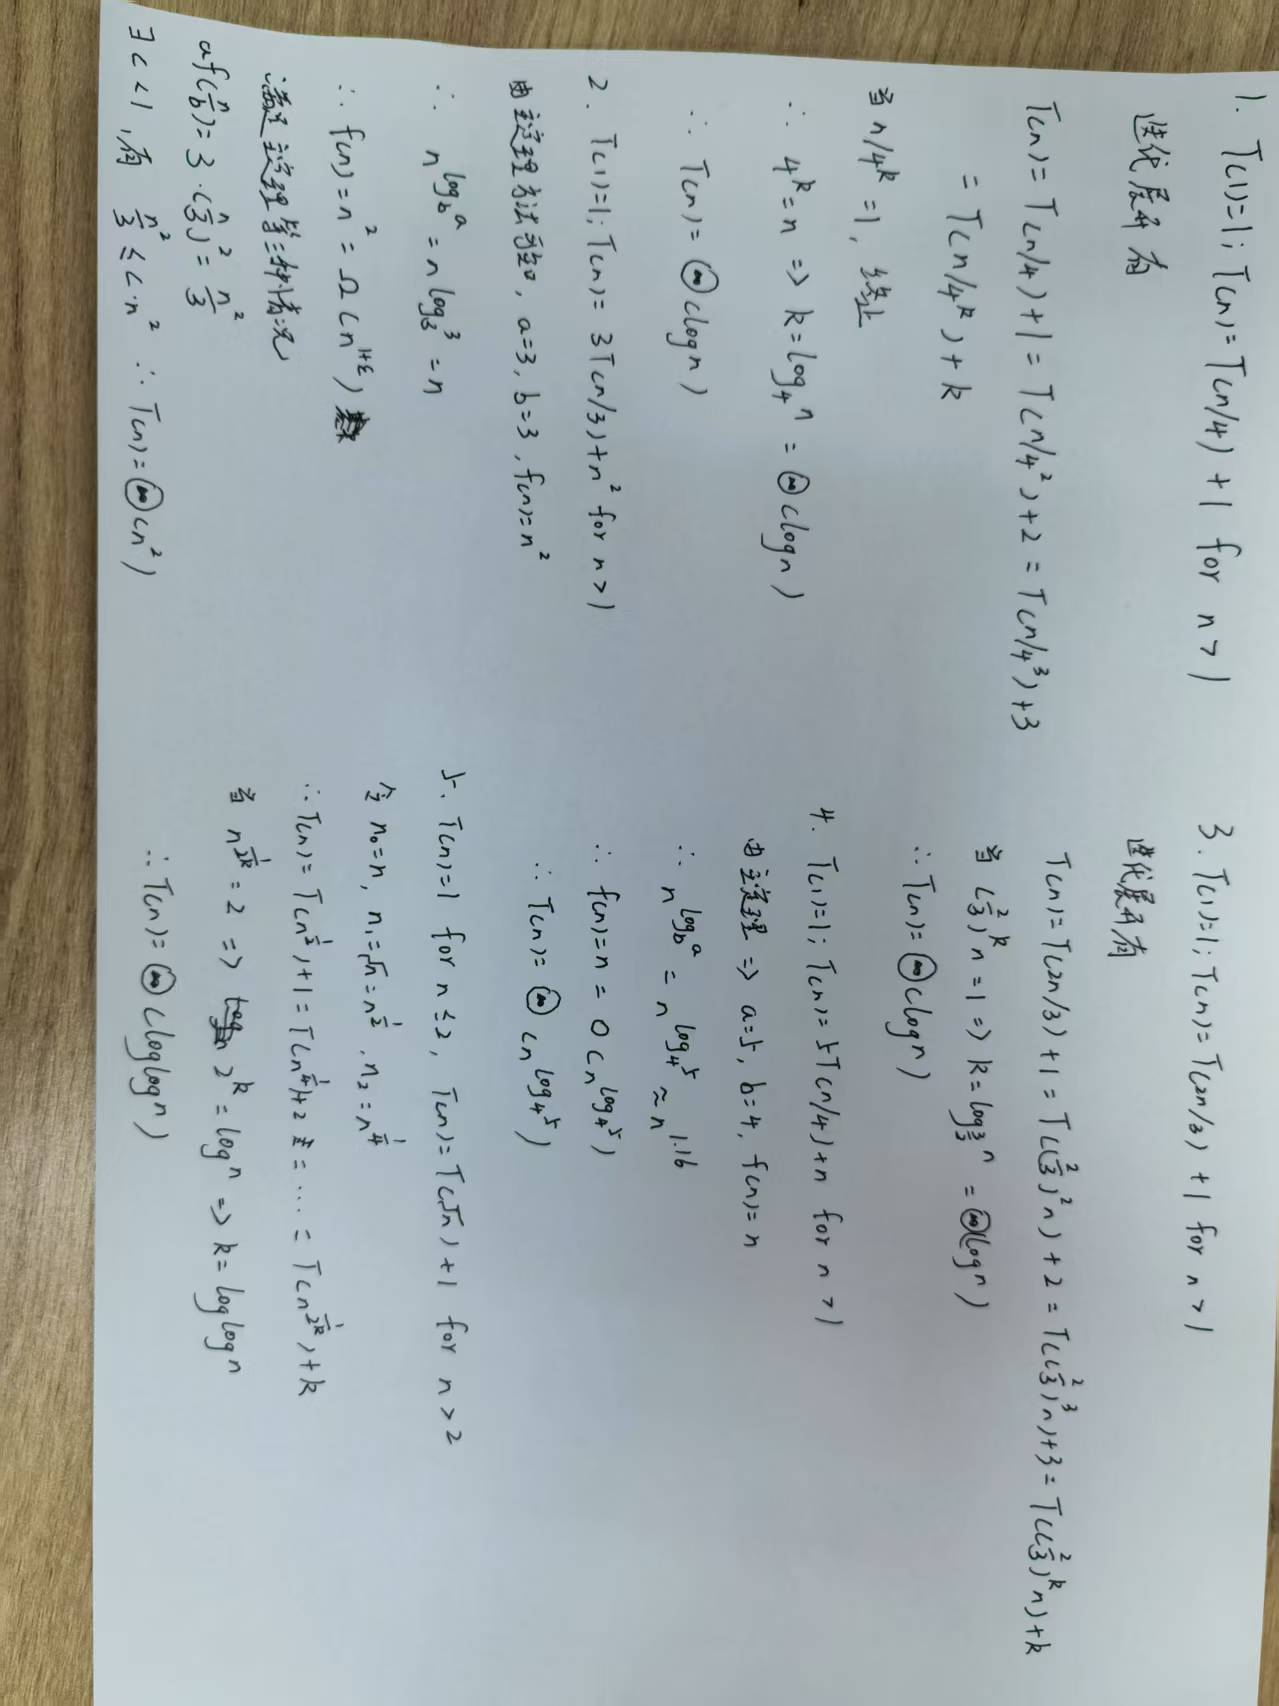 1. T(1)=1; T(n)=T(n/4)+1 for n>1
迭代展开有
T(n)=T(n/4)+1=T(n/4²)+2=T(n/4³)+3
=T(n/4^k)+k
当 n/4^k=1, 终止
∴ 4^k=n => k=log₄n=Θ(logn)
∴ T(n)=Θ(logn)
2. T(1)=1; T(n)=3T(n/3)+n² for n>1
由主定理方法可知, a=3, b=3, f(n)=n²
∴ n^{log_b a}=n log₃3=n
∴ f(n)=n²=Ω(n^{1+ε})
满足主定理第三种情况
af(n/b)=3·(n/3)²=n²/3
∃c<1, 有 n²/3≤c·n² ∴ T(n)=Θ(n²)
3. T(1)=1; T(n)=T(2n/3)+1 for n>1
迭代展开有
T(n)=T(2n/3)+1=T((2/3)²n)+2=T((2/3)³n)+3=T((2/3)^k n)+k
当 (2/3)^k n=1 => k=log_{3/2}n=Θ(logn)
∴ T(n)=Θ(logn)
4. T(1)=1; T(n)=5T(n/4)+n for n>1
由主定理 => a=5, b=4, f(n)=n
∴ n^{log_b a}=n^{log₄5}≈n^{1.16}
∴ f(n)=n=O(n^{log₄5})
∴ T(n)=Θ(n^{log₄5})
5. T(n)=1 for n≤2, T(n)=T(√n)+1 for n>2
令 n₀=n, n₁=√n=n^{1/2}, n₂=n^{1/4}
∴ T(n)=T(n^{1/2})+1=T(n^{1/4})+2=…=T(n^{1/2^k})+k
当 n^{1/2^k}=2 => 2^k=logn => k=loglogn
∴ T(n)=Θ(loglogn)